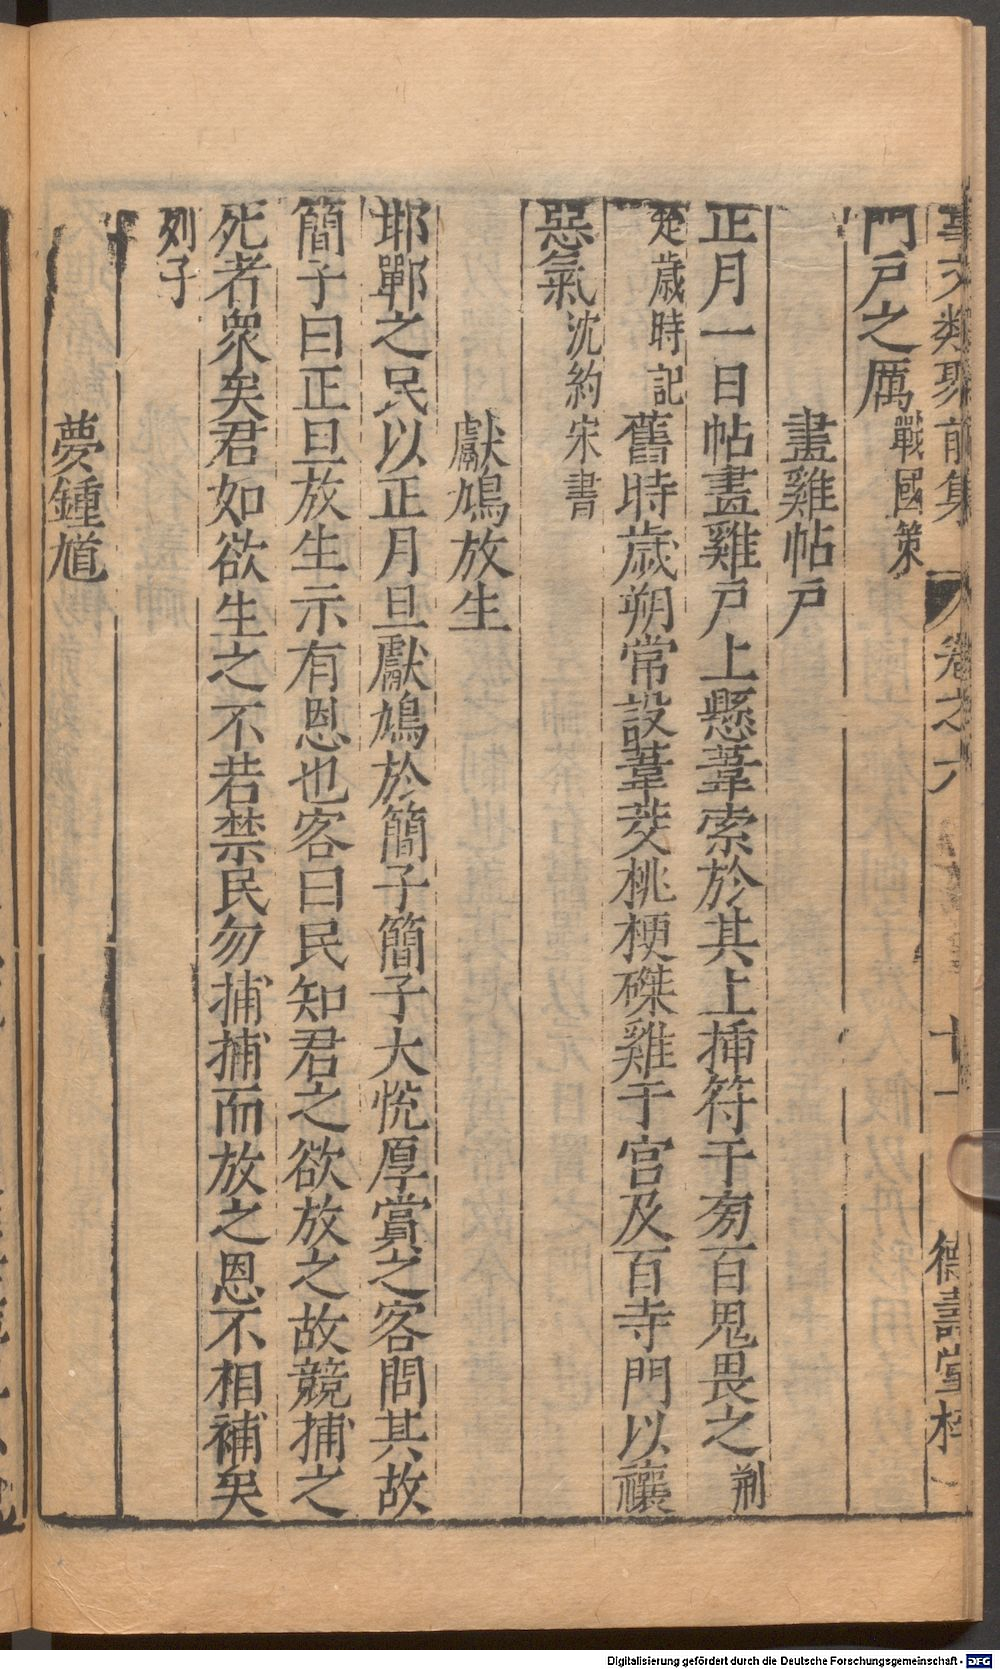 事文類聚前集 卷之六 十一 德壽堂梓
門戶之厲戰國策
畫雞帖戶
正月一日帖畫雞戶上懸葦索於其上揷符于旁百鬼畏之荆
楚歲時記舊時歲朔常設葦茭桃梗磔雞于宮及百寺門以禳
惡氣沈約宋書
獻鳩放生
邯鄲之民以正月旦獻鳩於簡子簡子大悅厚賞之客問其故
簡子曰正旦放生示有恩也客曰民知君之欲放之故競捕之
死者衆矣君如欲生之不若禁民勿捕捕而放之恩不相補矣
列子
夢鍾馗
Digitalisierung gefördert durch die Deutsche Forschungsgemeinschaft - DFG